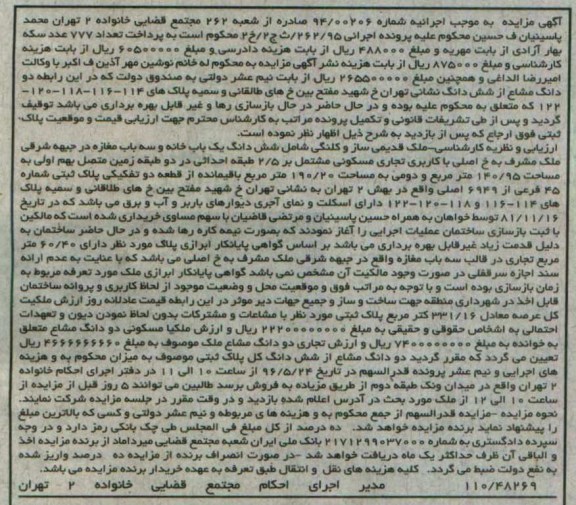 آگهی مزایده به موجب اجرائیه شماره ۹۴/۰۰۲۰۶ صادره از شعبه ۲۶۲ مجتمع قضایی خانواده ۲ تهران محمد
یاسینیان ف حسین محکوم علیه پرونده اجرائی ۲۶۲/۹۵/ث ج۲/خ۲ محکوم است به پرداخت تعداد ۷۷۷ عدد سکه
بهار آزادی از بابت مهریه و مبلغ ۴۸۸۰۰۰ ریال از بابت هزینه دادرسی و مبلغ ۶۰۵۰۰۰۰۰ ریال از بابت هزینه
کارشناسی و مبلغ ۸۷۵۰۰۰ ریال از بابت هزینه نشر آگهی مزایده به محکوم له خانم نوشین مهر آذین ف اکبر با وکالت
امیررضا الداغی و همچنین مبلغ ۲۶۵۵۰۰۰۰۰ ریال از بابت نیم عشر دولتی به صندوق دولت که در این رابطه دو
دانگ مشاع از شش دانگ نشانی تهران خ شهید مفتح بین خ های طالقانی و سمیه پلاک های ۱۱۴-۱۱۶-۱۱۸-۱۲۰-
۱۲۲ که متعلق به محکوم علیه بوده و در حال حاضر در حال بازسازی رها و غیر قابل بهره برداری می باشد توقیف
گردید و پس از طی تشریفات قانونی و تکمیل پرونده مراتب به کارشناس محترم جهت ارزیابی قیمت و موقعیت پلاک
ثبتی فوق ارجاع که پس از بازدید به شرح ذیل اظهار نظر نموده است.
ارزیابی و نظریه کارشناسی-ملک قدیمی ساز و کلنگی شامل شش دانگ یک باب خانه و سه باب مغازه در جبهه شرقی
ملک مشرف به خ اصلی با کاربری تجاری مسکونی مشتمل بر ۲/۵ طبقه احداثی در دو طبقه زمین متصل بهم اولی به
مساحت ۱۴۰/۹۵ متر مربع و دومی به مساحت ۱۹۰/۲۰ متر مربع باقیمانده از قطعه دو تفکیکی پلاک ثبتی شماره
۴۵ فرعی از ۶۹۴۹ اصلی واقع در بهش ۲ تهران به نشانی تهران خ شهید مفتح بین خ های طلاقانی و سمیه پلاک
های ۱۱۴-۱۱۶ و ۱۱۸-۱۲۰-۱۲۲ دارای اسکلت و نمای آجری دیوارهای باربر و آب و برق می باشد که در تاریخ
۸۱/۱۱/۱۶ توسط خواهان به همراه حسین یاسینیان و مرتضی قاضیان با سهم مساوی خریداری شده است که مالکین
با ثبت بازسازی ساختمان عملیات اجرایی را آغاز نمودند که بصورت نیمه کاره رها شده و در حال حاضر ساختمان به
دلیل قدمت زیاد غیرقابل بهره برداری می باشد بر اساس گواهی پایانکار ابرازی پلاک مورد نظر دارای ۶۰/۴۰ متر
مربع تجاری در قالب سه باب مغازه واقع در جبهه شرقی ملک مشرف به خ اصلی می باشد که با عنایت به عدم ارائه
سند اجاره سرقفلی در صورت وجود مالکیت آن مشخص نمی باشد گواهی پایانکار ابرازی ملک مورد تعرفه مربوط به
زمان بازسازی بوده است و با توجه به مراتب فوق و موقعیت محل و وضعیت موجود از لحاظ کاربری و پروانه ساختمان
قابل اخذ در شهرداری منطقه جهت ساخت و ساز و جمیع جهات دیر موثر در این رابطه قیمت عادلانه روز ارزش ملکیت
کل عرصه معادل ۳۳۱/۱۶ کتر مربع پلاک ثبتی مورد نظر با مشاعات و مشترکات بدون لحاظ نمودن دیون و تعهدات
احتمالی به اشخاص حقوقی و حقیقی به مبلغ ۲۲۲۰۰۰۰۰۰۰۰۰ ریال و ارزش ملکیا مسکونی دو دانگ مشاع متعلق
به خوانده به مبلغ ۷۴۰۰۰۰۰۰۰۰۰ ریال و ارزش تجاری دو دانگ مشاع ملک موصوف به مبلغ ۴۶۶۶۶۶۶۶۶۶۰ ریال
تعیین می گردد که مقرر گردید دو دانگ مشاع از شش دانگ کل پلاک ثبتی موصوف به میزان محکوم به و هزینه
های اجرایی و نیم عشر پرونده قدرالسهم در تاریخ ۹۶/۵/۲۴ از ساعت ۱۰ الی ۱۱ در دفتر اجرای احکام خانواده
۲ تهران واقع در میدان ونک طبقه دوم از طریق مزیاده به فروش برسد طالبین می توانند ۵ روز قبل از مزایده از
ساعت ۱۰ الی ۱۲ از ملک مورد بحث در آدرس اعلام شده بازدید و در وقت مقرر در جلسه مزایده شرکت نمایند.
نحوه مزایده -مزایده قدرالسهم از جمع محکوم به و هزینه ها ی مربوطه و نیم عشر دولتی و کسی که بالاترین مبلغ
را پیشنهاد نماید برنده مزایده خواهد شد. ده درصد از کل مبلغ فی المجلس طی چک بانکی رمز دارد و در وجه
سپرده دادگستری به شماره ۲۱۷۱۲۹۹۰۳۷۰۰۰ بانک ملی ایران شعبه مجتمع قضایی میرداماد از برنده مزایده اخذ
و الباقی آن ظرف حداکثر یک ماه دریافت خواهد شد -در صورت انصراف برنده از مزایده ده درصد واریز شده
به نفع دولت ضبط می گردد. کلیه هزینه های نقل و انتقال طبق تعرفه به عهده خریدار برنده مزایده می باشد.
۱۱۰/۴۸۲۶۹ مدیر اجرای احکام مجتمع قضایی خانواده ۲ تهران